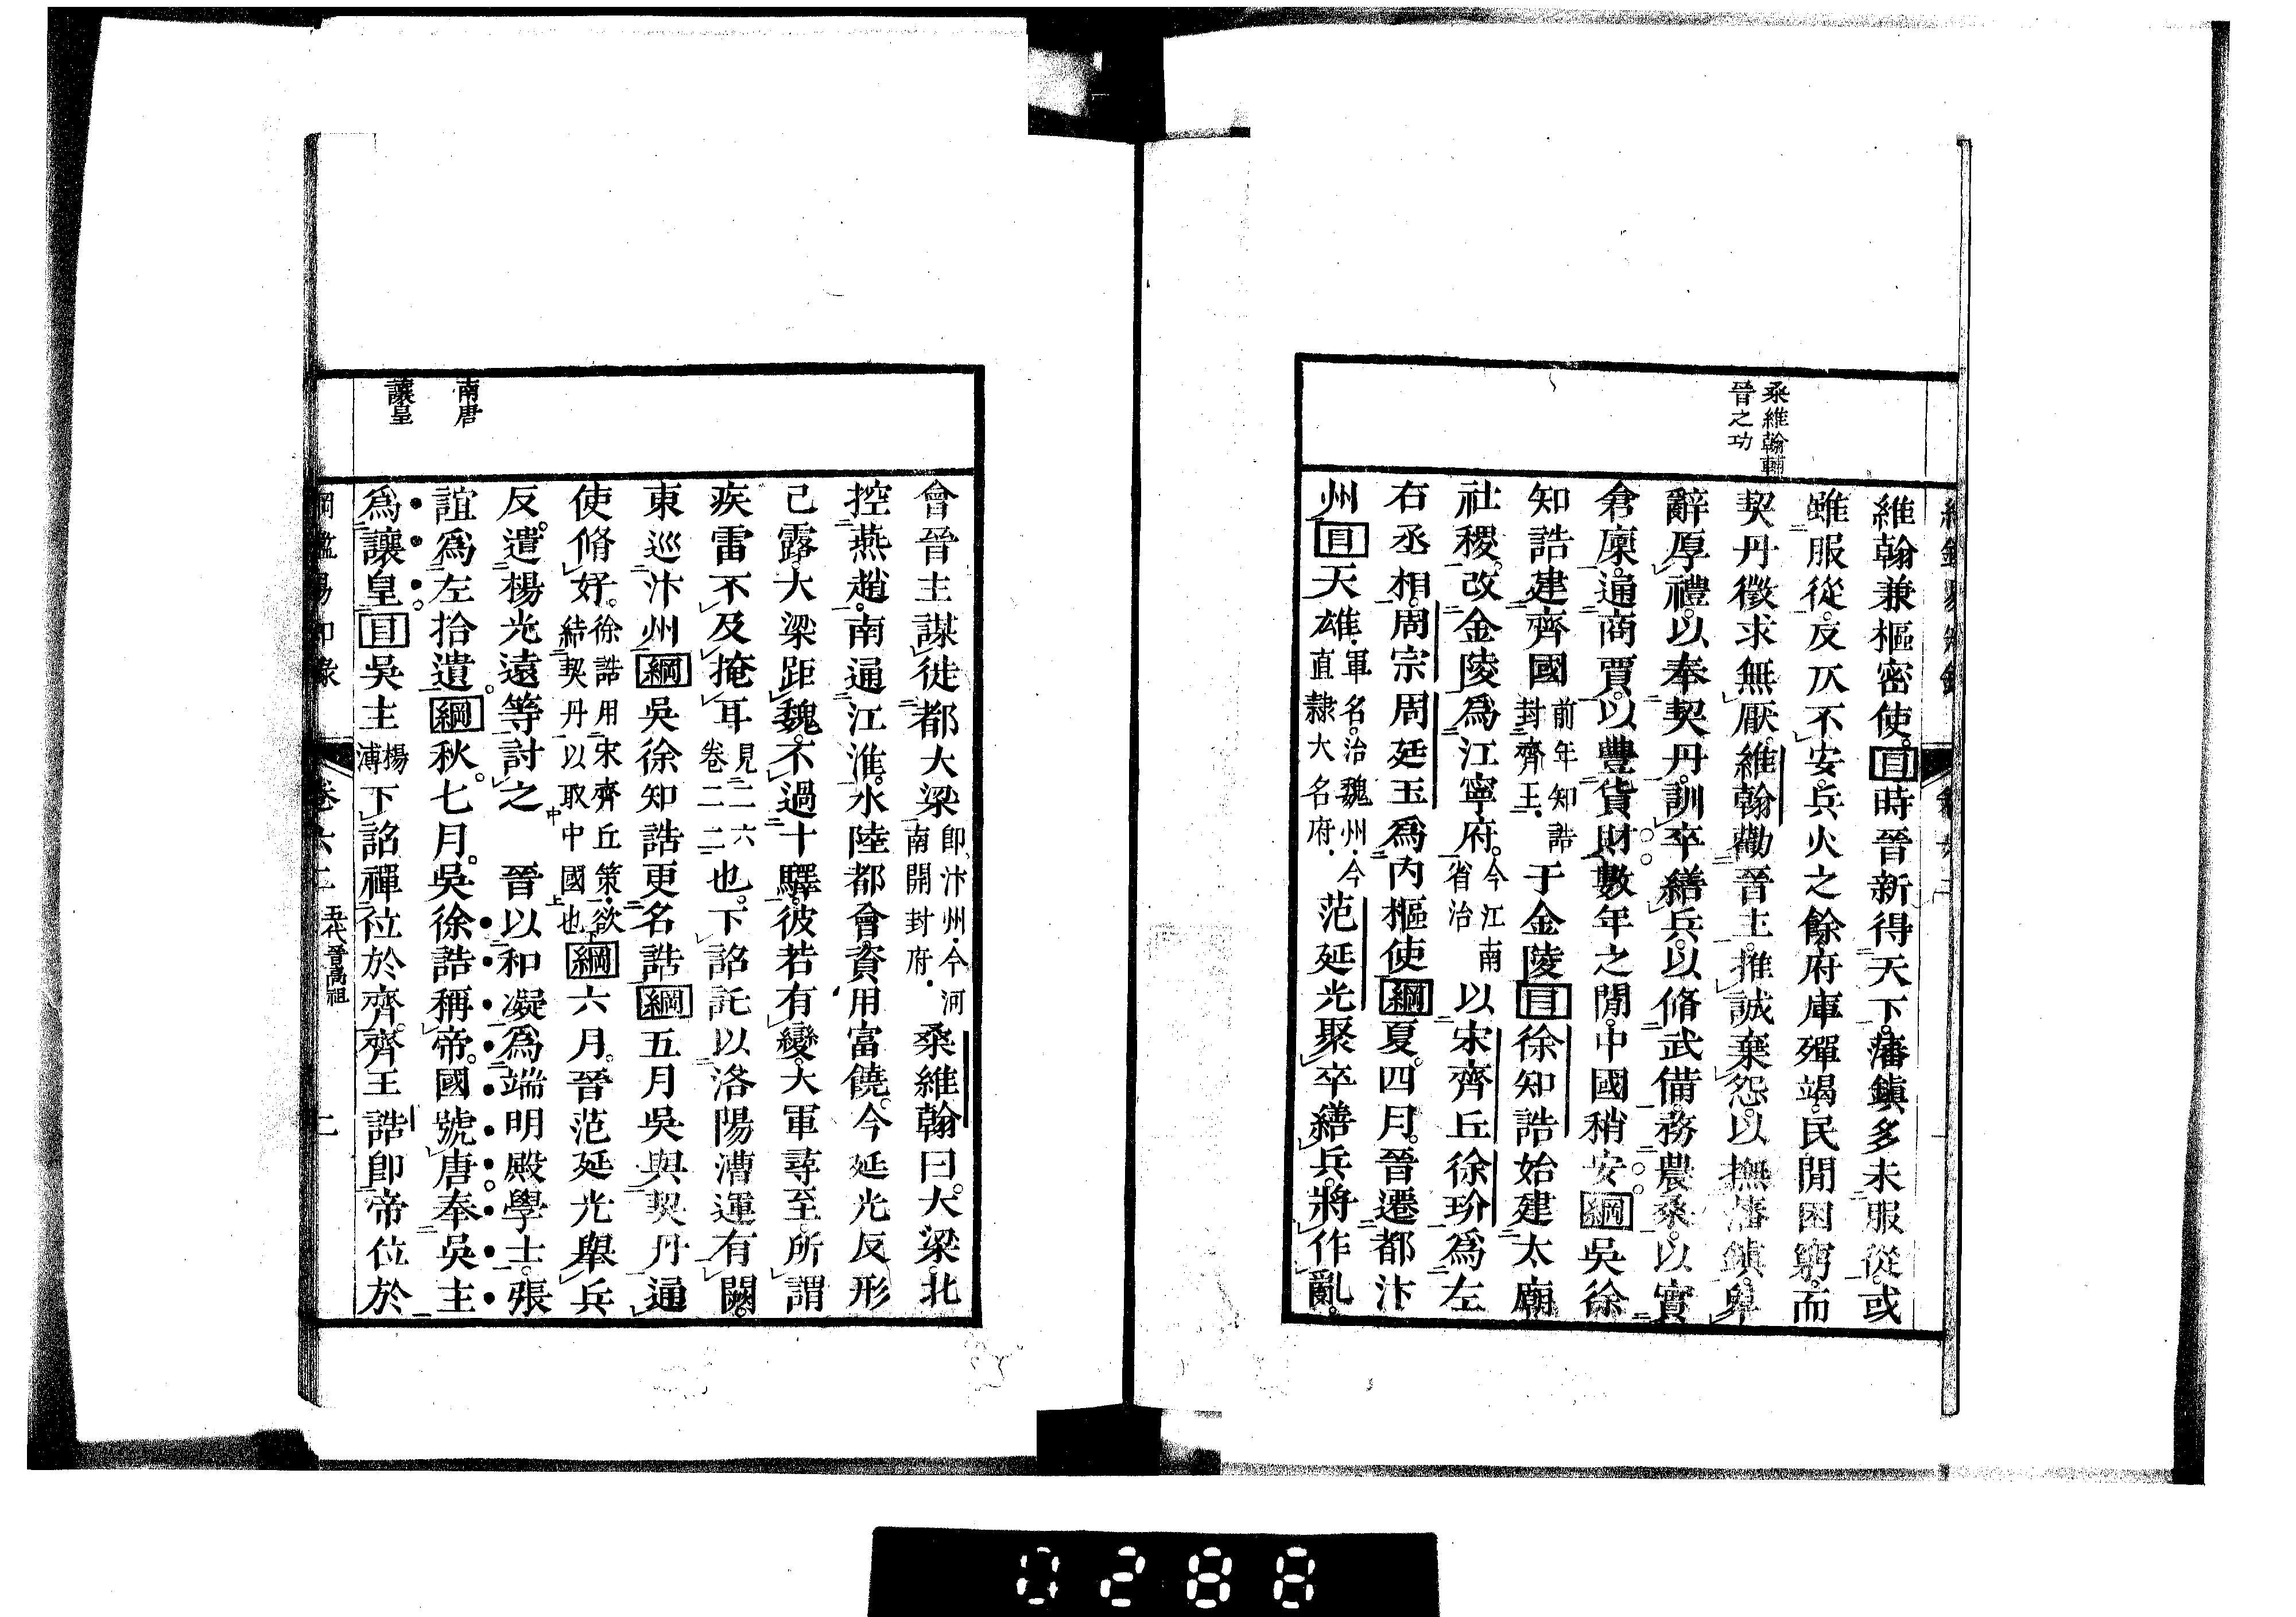 桑維翰輔
晉之功
維翰兼樞密使。目時晉新得天下。藩鎭多未服從。或
雖服從。反仄不安。兵火之餘。府庫殫竭。民閒困窮。而
契丹徵求無厭。維翰勸晉主。推誠棄怨。以撫藩鎭。卑
辭厚禮。以奉契丹。訓卒繕兵。以脩武備。務農桑。以實
倉廩。通商賈。以豐貨財。數年之閒。中國稍安。綱吳徐
知誥建齊國前年知誥封齊王・于金陵目徐知誥始建太廟
社稷。改金陵爲江寧府。今江南省治以宋齊丘徐玠爲左
右丞相。周宗周廷玉爲內樞使綱夏。四月。晉遷都汴
州目天雄・軍名。治魏州・今直隷大名府・范延光聚卒繕兵。將作亂。
會晉主謀徙都大梁卽汴州・今河南開封府・桑維翰曰。大梁。北
控燕趙。南通江淮。水陸都會。資用富饒。今延光反形
已露。大梁距魏。不過十驛。彼若有變。大軍尋至。所謂
疾雷不及掩耳見二六卷二二也。下詔託以洛陽漕運有闕。
東巡汴州綱吳徐知誥更名誥綱五月吳與契丹通
使脩好。徐誥用宋齊丘策・欲結契丹以取中國也綱六月。晉范延光舉兵
反。遣楊光遠等討之　晉以和凝爲端明殿學士。張
誼爲左拾遺。綱秋。七月。吳徐誥稱帝。國號唐。奉吳主
爲讓皇。目吳主楊溥下詔禪位於齊。齊王誥卽帝位於
南唐
讓皇
綱鑑易知錄
卷六二
五代晉高祖
二
0288